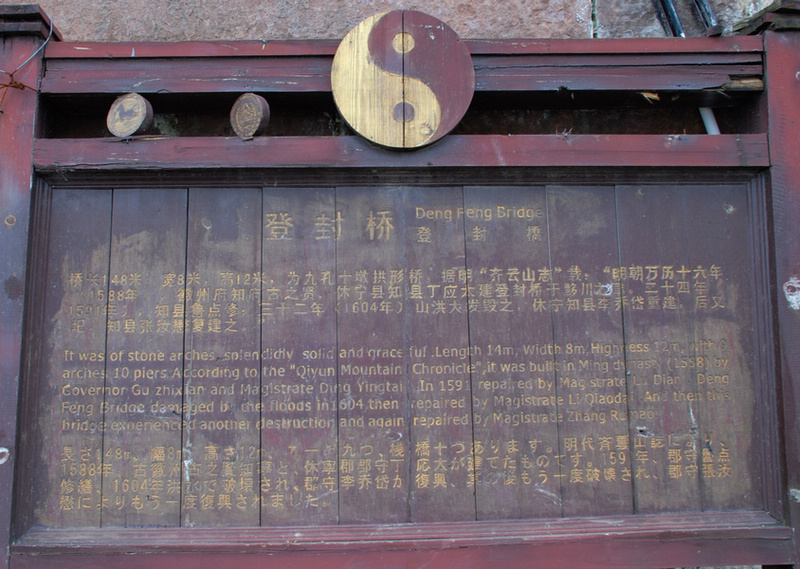 登封桥 Deng Feng Bridge
登封橋
桥长148米 宽8米 高12米，为九孔十墩拱形桥，据明“齐云山志”载：“明朝万历十六年
1588年 徽州府知府古之贤，休宁县知县丁应太建登封桥于黟川之 二十四年
1591年），知县鲁点修；三十二年（1604年）山洪大发毁之，休宁知县李乔岱重建，后又
圮 知县张汝懋复建之。
It was of stone arches, splendidly solid and graceful .Length 14m, Width 8m, Highness 12m, with 9
arches 10 piers. According to the "Qiyun Mountain Chronicle", it was built in Ming dynase (1558) by
Governor Gu zhixian and Magistrate Ding Yingtai .In 1591 repaired by Magistrate Li Dian. Deng
Feng Bridge damaged by the floods in1604,then repaired by Magistrate Li Qiaodai. And then this
bridge experienced another destruction and again repaired by Magistrate Zhang Rumao.
長さ148m、幅8m、高さ12m、アーチ九つ、橋十つあります。明代斉雲山誌により、
1588年、古徽州古之賢知事と、休寧郡郡守丁応太が建てたものです。159 年、郡守魯点
修繕、1604年洪水で破壊され、郡守李乔岱が復興、其の後もう一度破壊され、郡守張汝
懋によりもう一度復興されました。